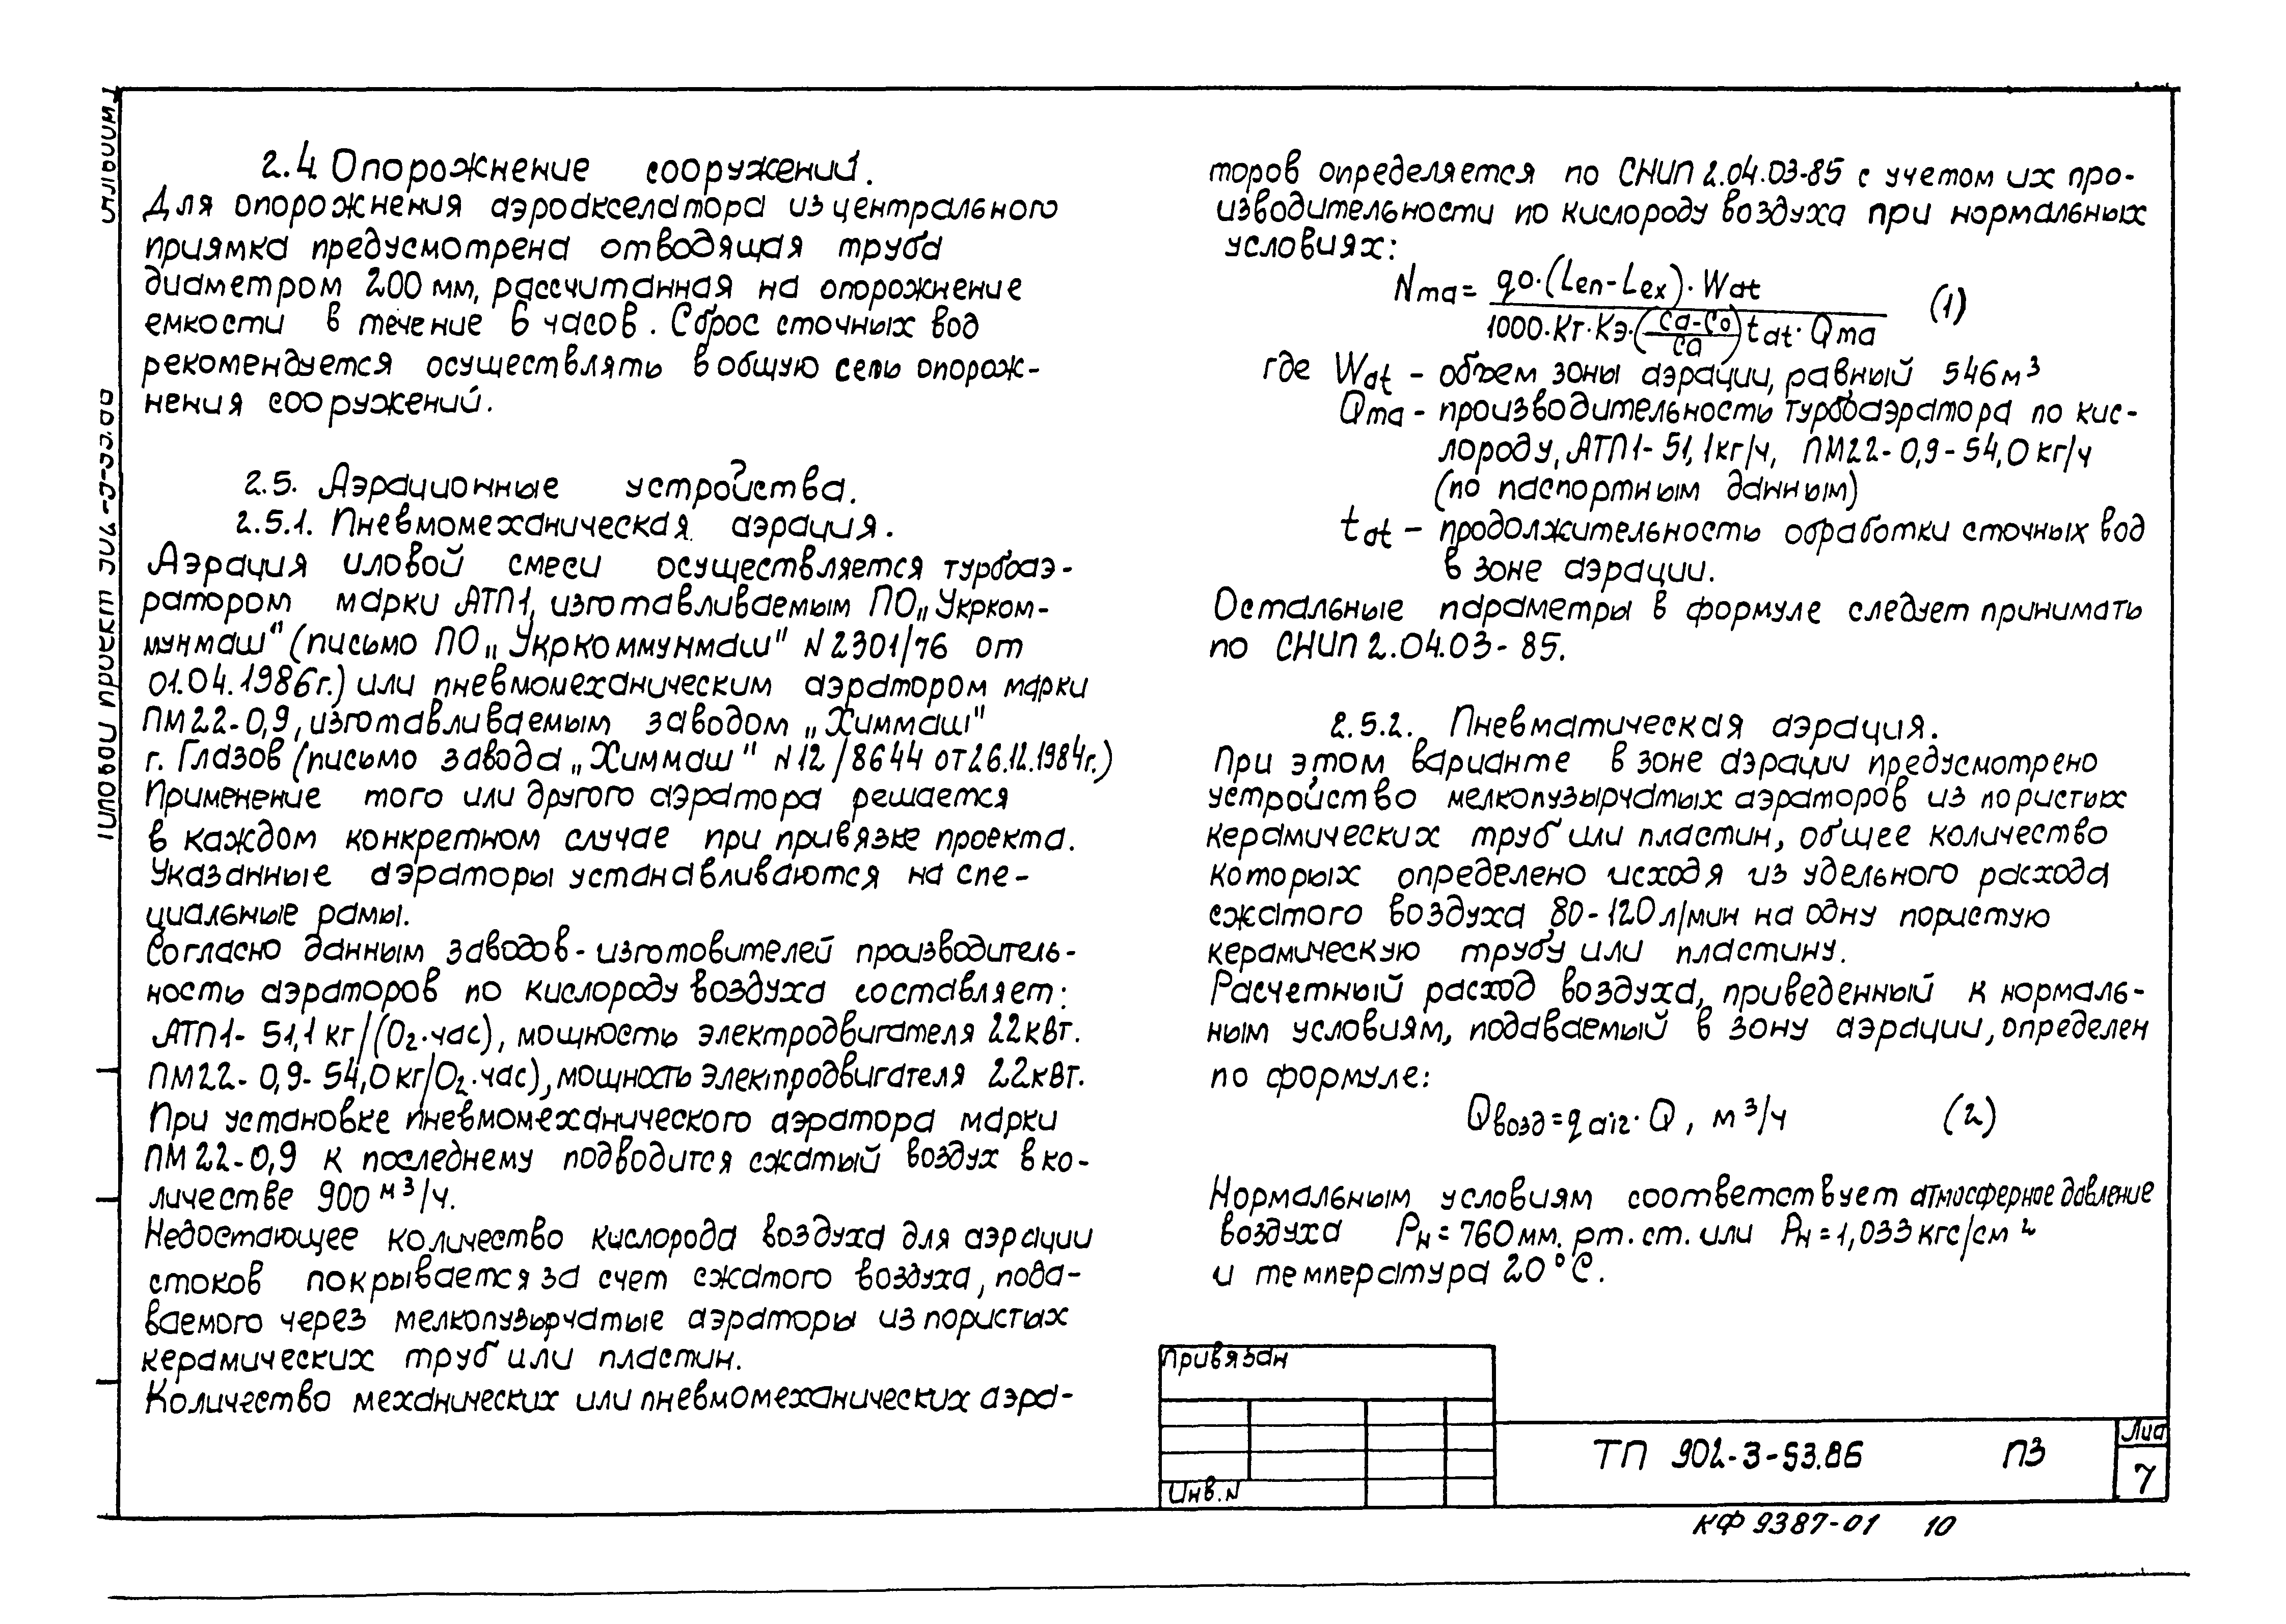 2.4 Опорожнение сооружений.
Для опорожнения аэроакселатора из центрального
приямка предусмотрена отводящая труба
диаметром 200 мм, рассчитанная на опорожнение
емкости в течение 6 часов. Сброс сточных вод
рекомендуется осуществлять в общую сеть опорож-
нения сооружений.
2.5. Аэрационные устройства.
2.5.1. Пневмомеханическая аэрация.
Аэрация иловой смеси осуществляется турбоаэ-
ратором марки АТП1, изготавливаемым ПО „Укрком-
мунмаш" (письмо ПО „Укркоммунмаш" N 2301/76 от
01.04.1986г.) или пневмомеханическим аэратором марки
ПМ22-0,9, изготавливаемым заводом „Химмаш"
г. Глазов (письмо завода „Химмаш" N12/8644 от 26.12.1984г.)
Применение того или другого аэратора решается
в каждом конкретном случае при привязке проекта.
Указанные аэраторы устанавливаются на спе-
циальные рамы.
Согласно данным заводов-изготовителей производитель-
ность аэраторов по кислороду воздуха составляет:
АТП1- 51,1 кг/(O2·час), мощность электродвигателя 22кВт.
ПМ22- 0,9- 54,0кг/O2·час), мощность электродвигателя 22кВт.
При установке пневмомеханического аэратора марки
ПМ22-0,9 к последнему подводится сжатый воздух в ко-
личестве 900 м³/ч.
Недостающее количество кислорода воздуха для аэрации
стоков покрывается за счет сжатого воздуха, пода-
ваемого через мелкопузырчатые аэраторы из пористых
керамических труб или пластин.
Количество механических или пневмомеханических аэра-
торов определяется по СНИП 2.04.03-85 с учетом их про-
изводительности по кислороду воздуха при нормальных
условиях:
Nma = qo·(Len-Lex)·Wat / 1000·Кт·Кэ·(Ca-Co/Ca) tat·Qma (1)
где Wat - объем зоны аэрации, равный 546м³
Qma - производительность турбоаэратора по кис-
лороду, АТП1- 51,1кг/ч, ПМ22- 0,9 - 54,0 кг/ч
(по паспортным данным)
tat - продолжительность обработки сточных вод
в зоне аэрации.
Остальные параметры в формуле следует принимать
по СНИП 2.04.03- 85.
2.5.2. Пневматическая аэрация.
При этом варианте в зоне аэрации предусмотрено
устройство мелкопузырчатых аэраторов из пористых
керамических труб или пластин, общее количество
которых определено исходя из удельного расхода
сжатого воздуха 80-120 л/мин на одну пористую
керамическую трубу или пластину.
Расчетный расход воздуха, приведенный к нормаль-
ным условиям, подаваемый в зону аэрации, определен
по формуле:
Qвозд = qair·Q, м³/ч (2)
Нормальным условиям соответствует атмосферное давление
воздуха Рн = 760мм. рт. ст. или Рн = 1,033 кгс/см²
и температура 20°С.
Привязан
Инв. N
ТП 902-3-53.86 ПЗ
7
КФ 9387-01 10